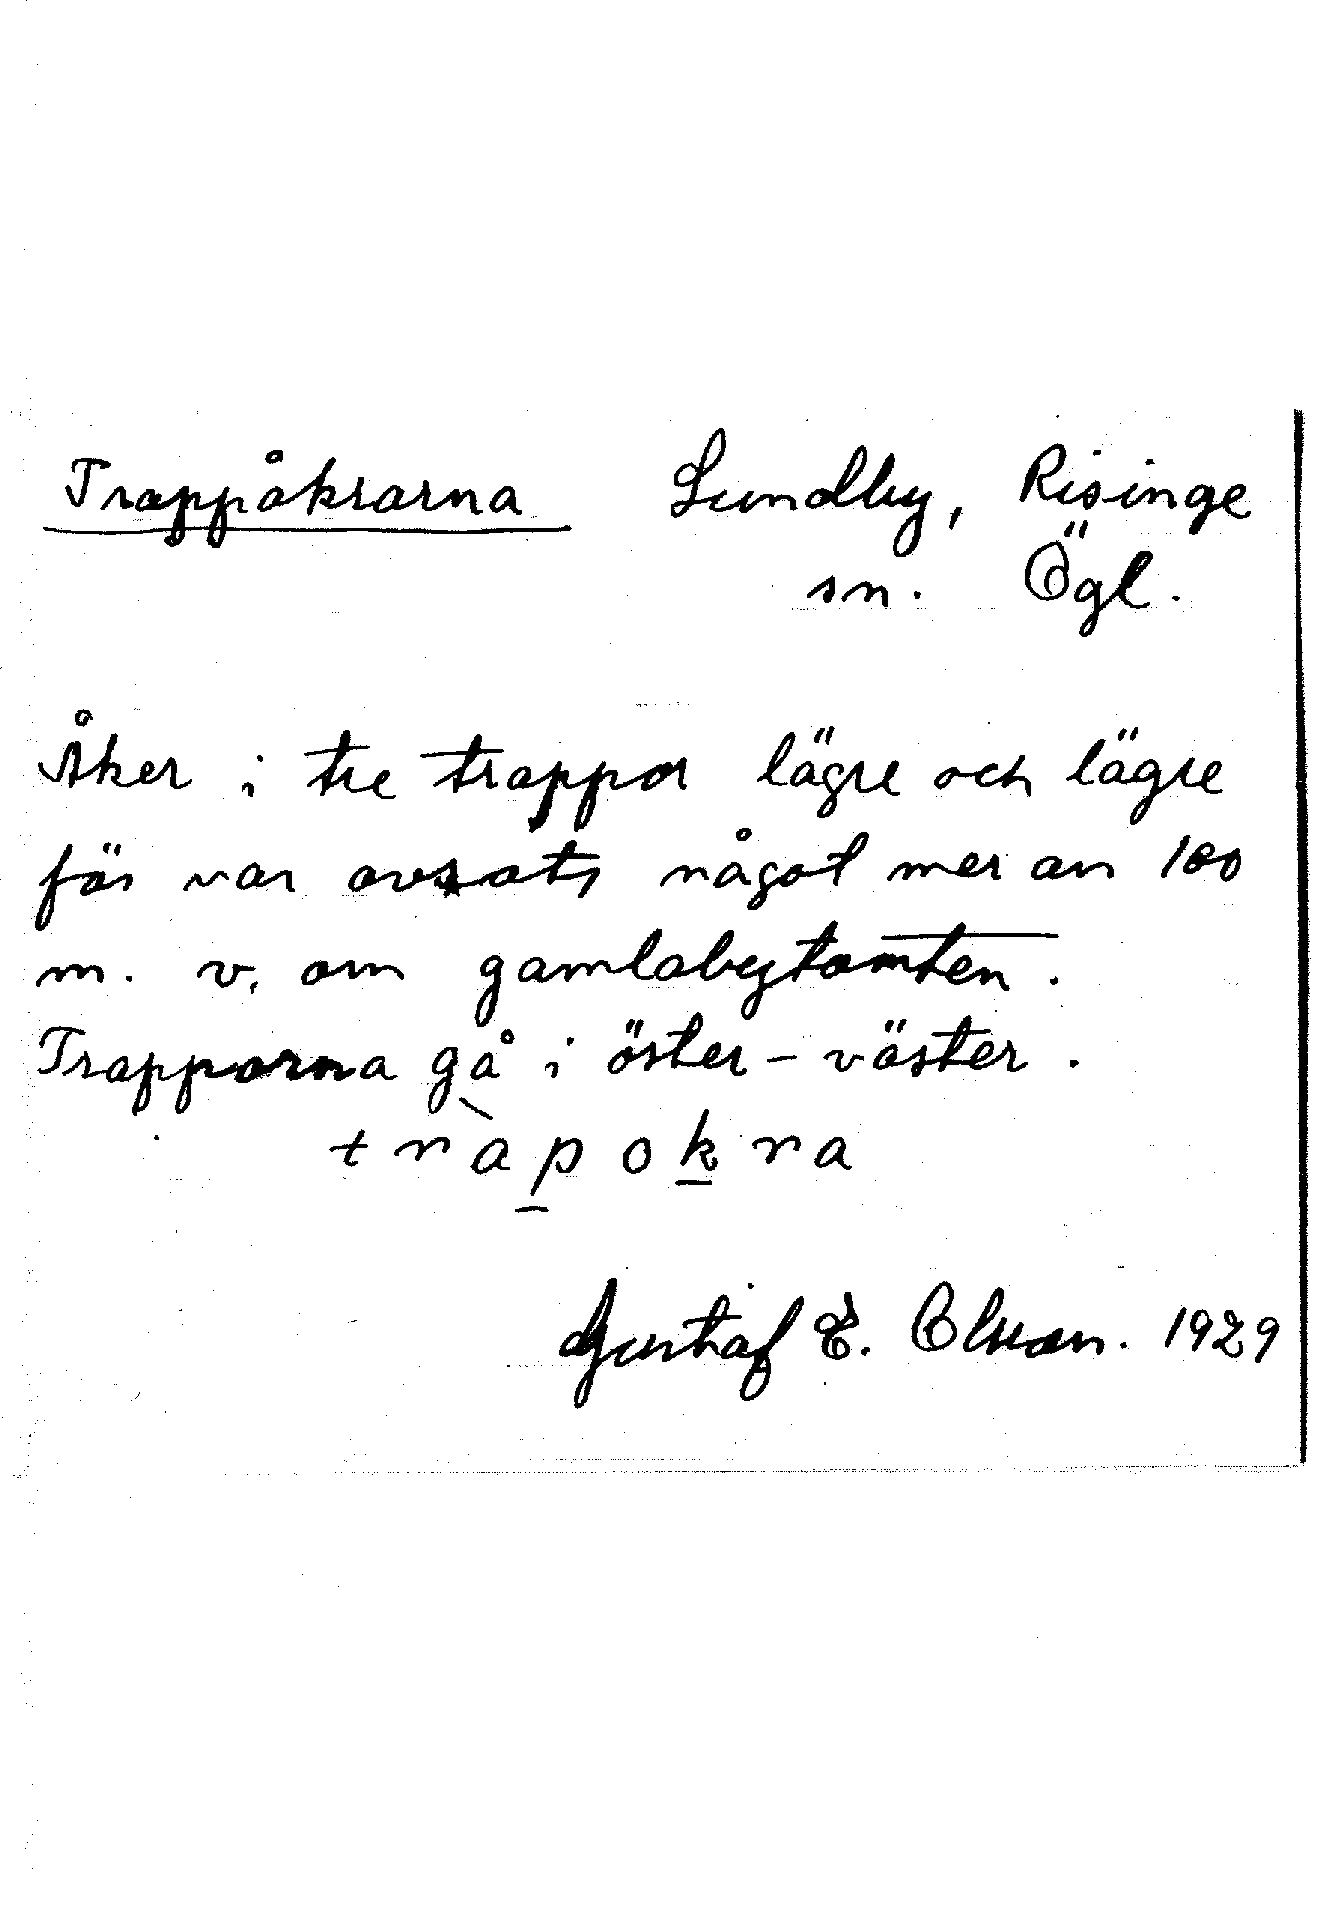 Trappåkrarna Lundby, Risinge
sn. Ögl.
Åker i tre trappor lägre och lägre
för var avsats något mer an 100
m. v. om gamlabytomten.
Trapporna gå i öster - väster.
tràpokra
Gustaf E. Olsson. 1929